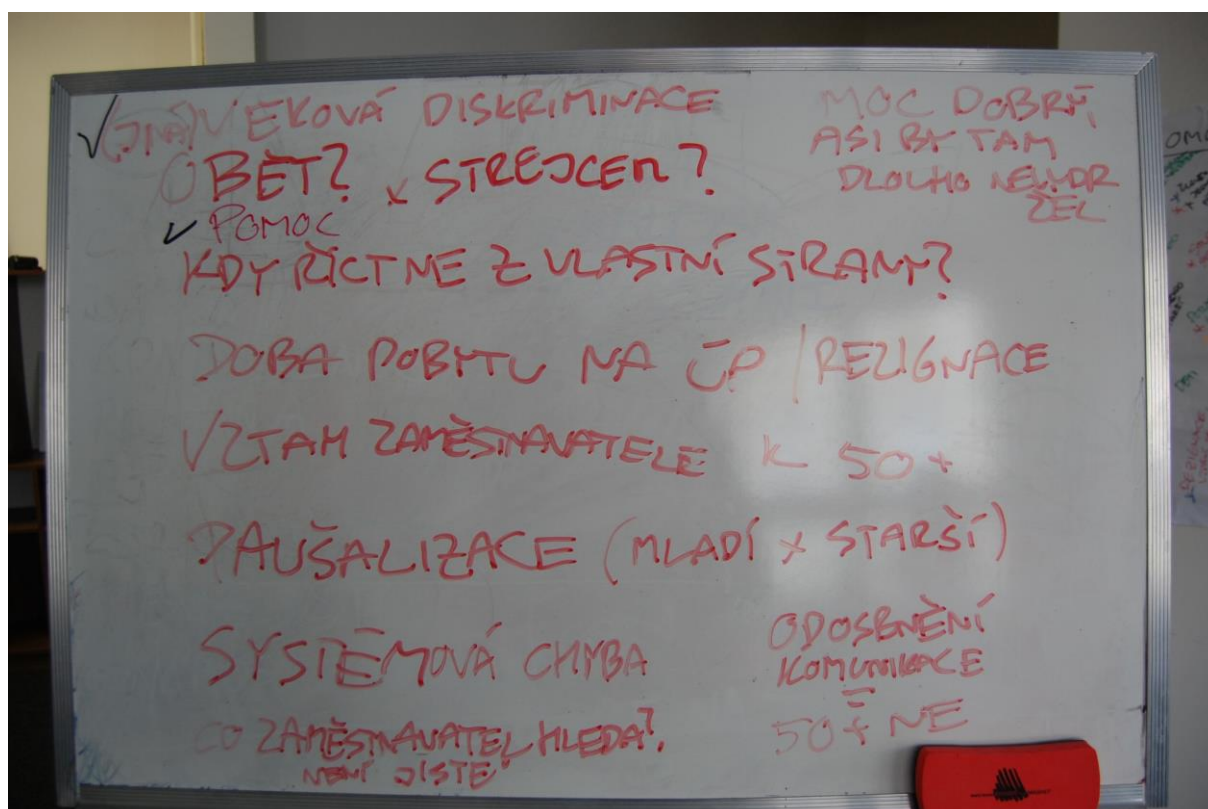 ✓ (JINÁ) VĚKOVÁ DISKRIMINACE
OBĚŤ? x STREJCEM?
✓ POMOC
KDY ŘÍCT NE Z VLASTNÍ STRANY?
DOBA POBYTU NA ÚP / REZIGNACE
VZTAH ZAMĚSTNAVATELE K 50+
PAUŠALIZACE (MLADÍ x STARŠÍ)
SYSTÉMOVÁ CHYBA
CO ZAMĚSTNAVATEL HLEDÁ?
NENÍ JISTÉ
MOC DOBRÝ,
ASI BY TAM
DLOUHO NEVYDR
ŽEL
ODOSBNĚNÍ
KOMUNIKACE
=
50+ NE